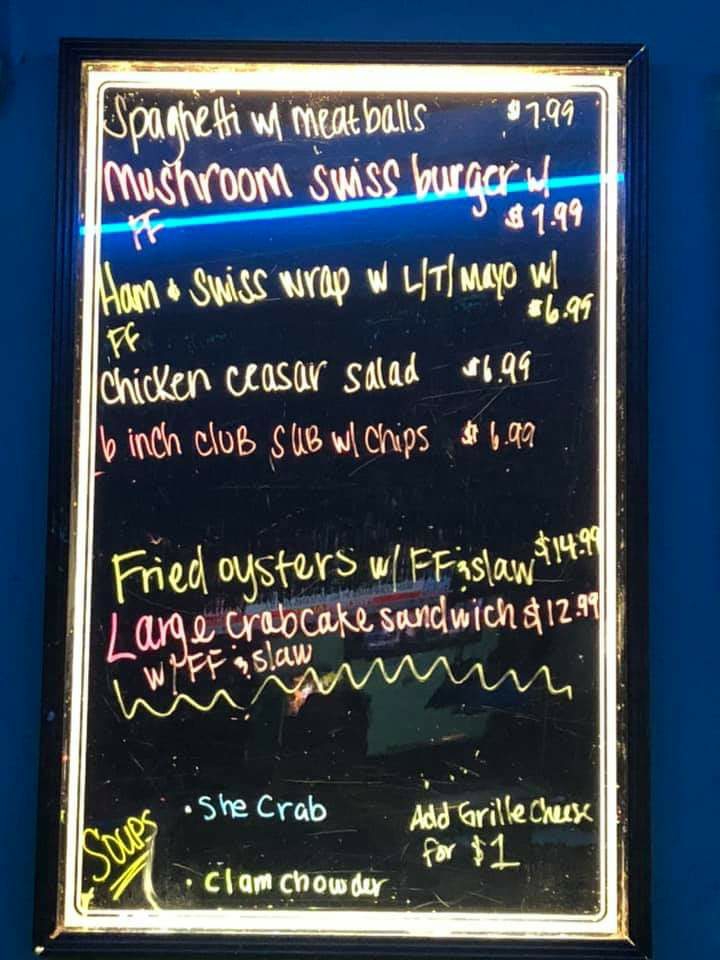 Spaghetti w/ meatballs $7.99
Mushroom swiss burger w/
FF $7.99
Ham & Swiss wrap w L/T/Mayo w/
FF $6.99
Chicken ceasar salad $6.99
6 inch cluB SUB w/ chips $6.99
Fried oysters w/ FF & slaw $14.99
Large crabcake sandwich $12.99
w/ FF & slaw
Soups
• She Crab
• clam chowder
Add Grille Cheese
for $1